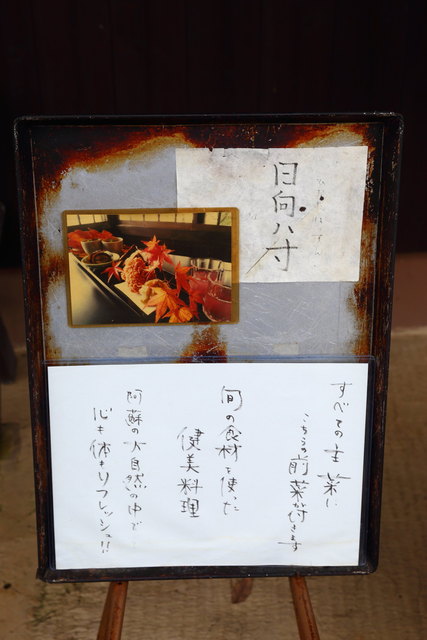 日向八寸
すべての主菜に
こちらの前菜が付きます
旬の食材を使った
健美料理
阿蘇の大自然の中で
心も体もリフレッシュ!!